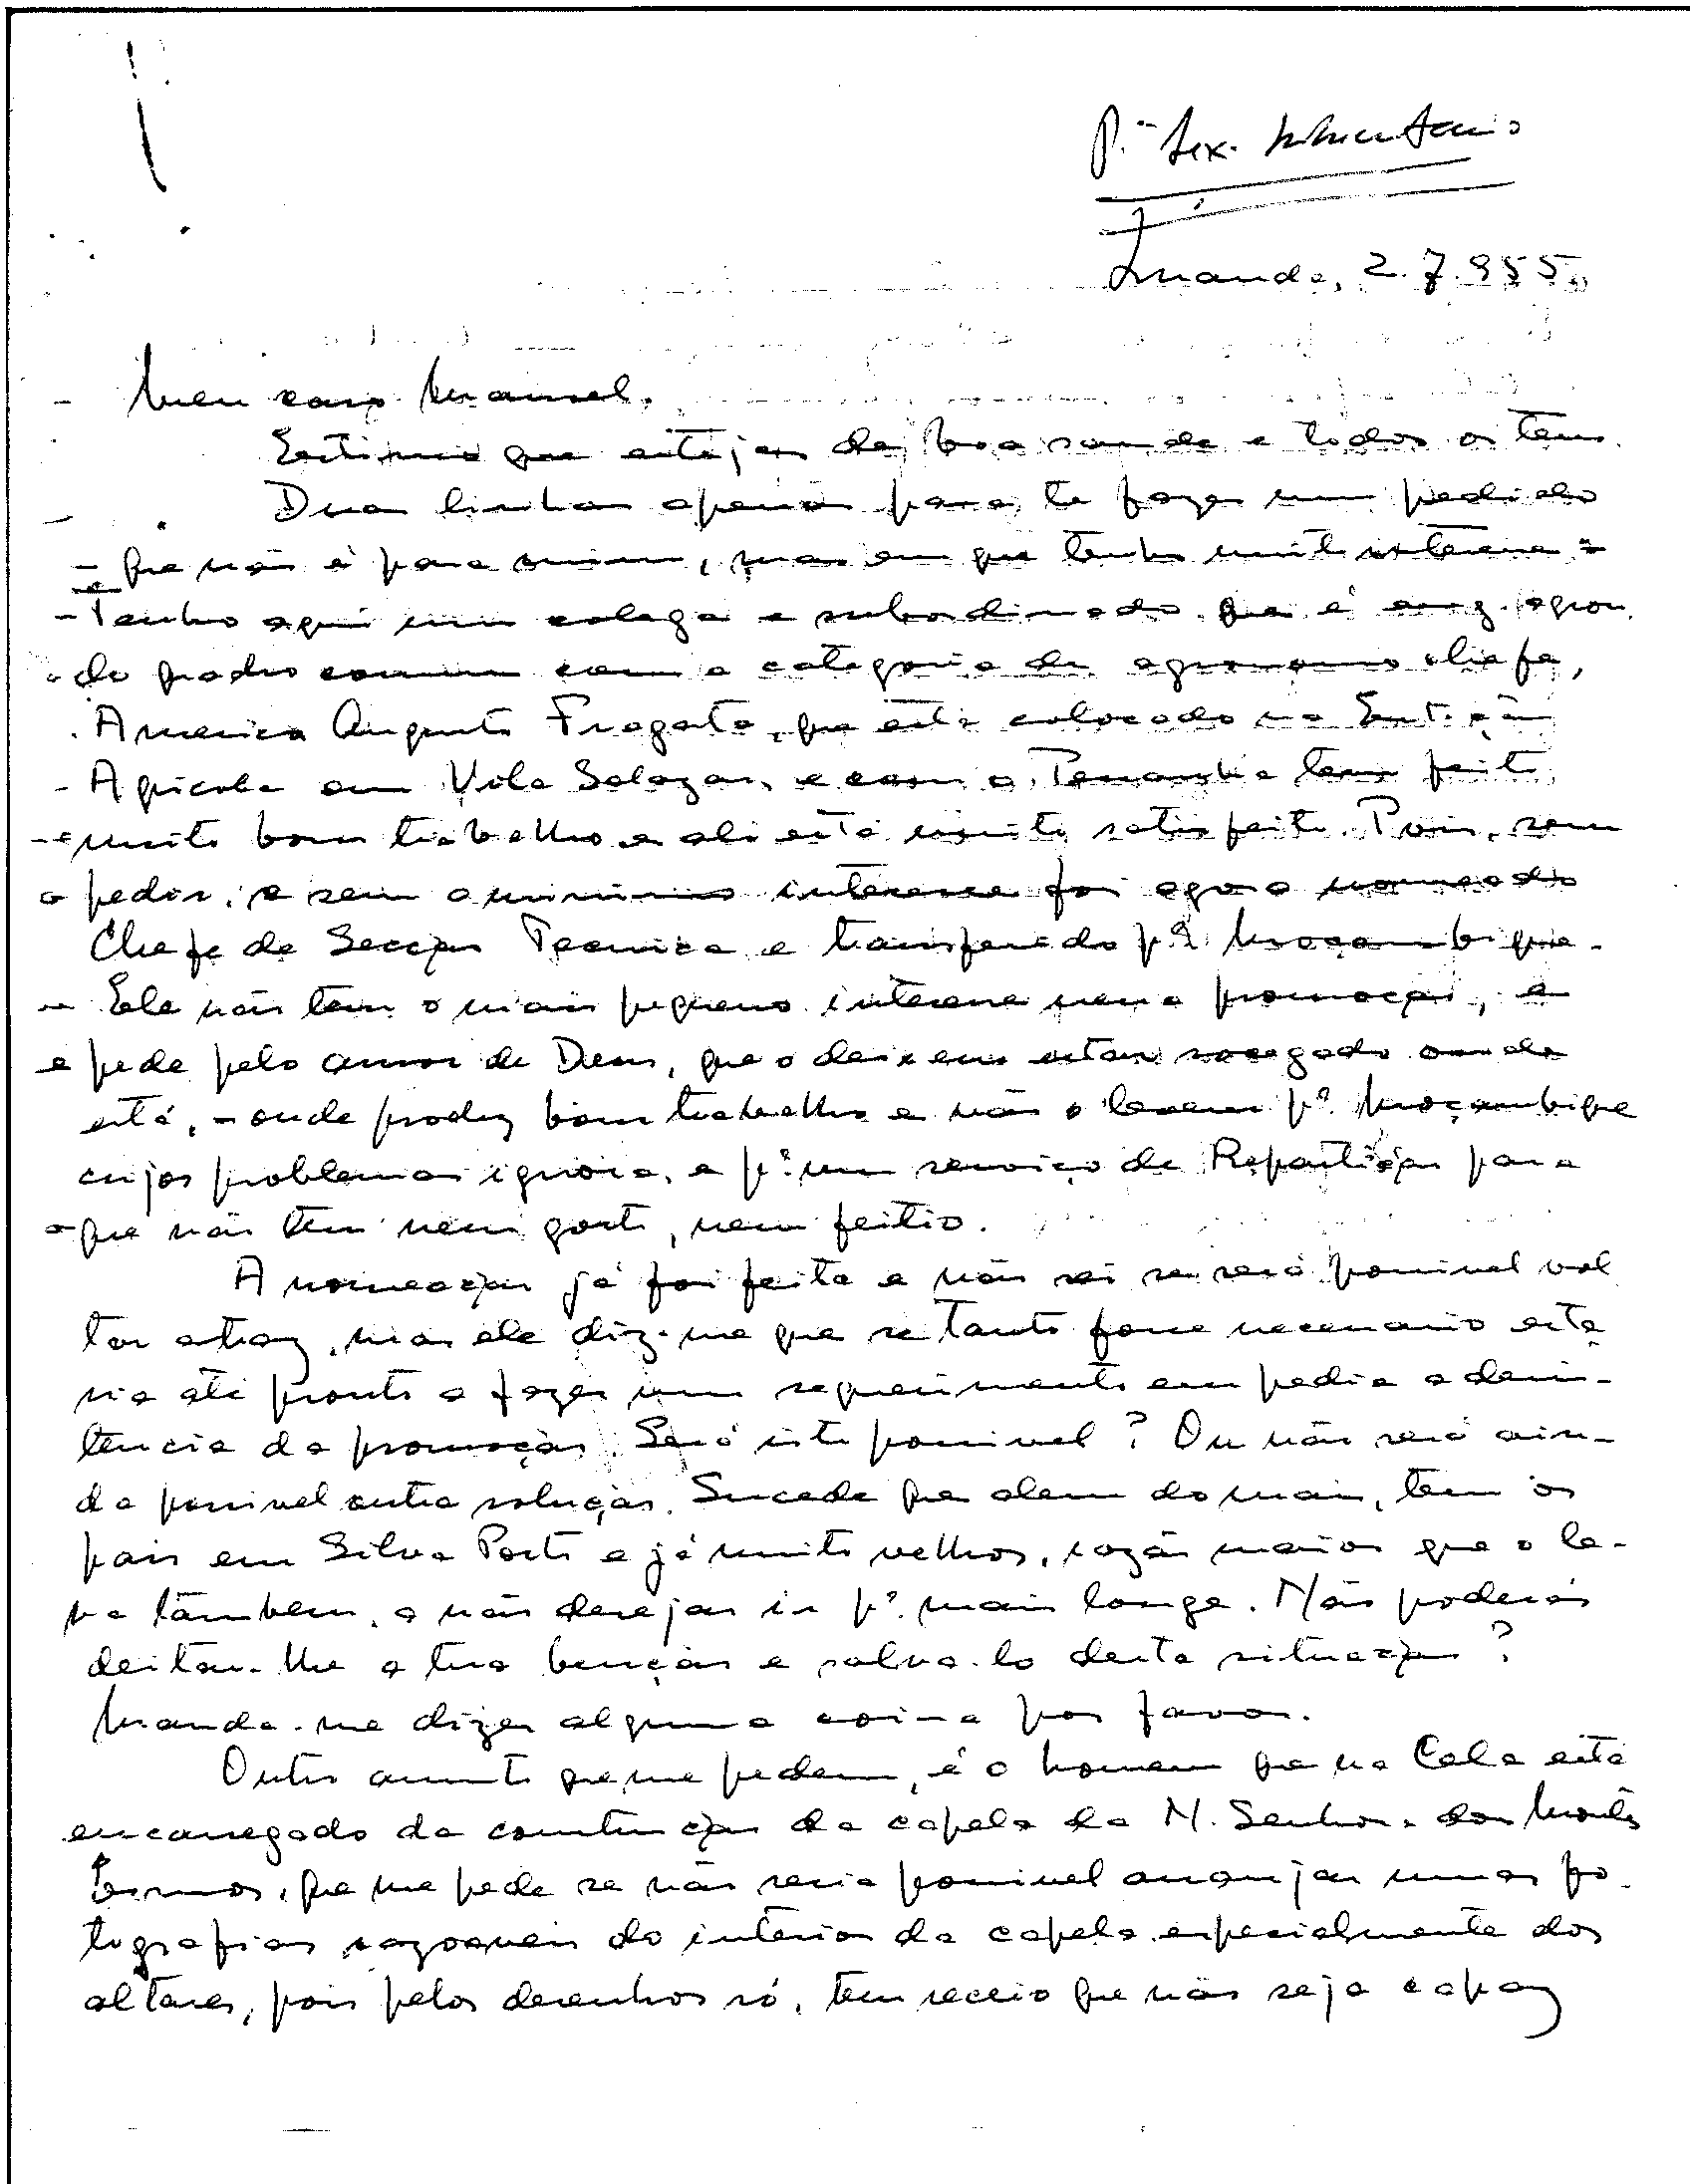 Luanda, 2.7.955.
Meu caro Manuel.
Estimo que estejas de boa saude e todos os teus.
Duas linhas apenas para te fazer um pedido
que não é para mim, mas em que tenho muito interesse =
Tenho aqui um colega e subordinado que é eng. agron.
do quadro comum com a categoria de agronomo chefe,
Americo Augusto Fragata, que está colocado na Estação
Agricola em Vila Salazar, e com o tem feito
muito bom trabalho e ali está muito satisfeito. Pois, sem
o pedir, e sem o minimo interesse foi agora nomeado
Chefe de Secção Tecnica e transferido pª Moçambique.
Ele não tem o mais pequeno interesse nem a promoção, e
e pede pelo amor de Deus, que o deixem estar socegado onde
está, - onde produz bom trabalho e não o levem pª Moçambique
cujos problemas ignora, e pª um serviço de Repartição para
que não tem nem gosto, nem feitio.
A nomeação já foi feita e não sei se será possivel vol
tar atraz, mas ele diz-me que se tanto fosse necessario esta
ria até pronto a fazer um requerimento em pedia a desis-
tencia da promoção. Será isto possivel? Ou não será ain-
da possivel outra solução. Sucede que alem do mais, tem os
pais em Silva Porto e já muito velhos, razão maior que o le-
va tâmbem, a não desejar ir pª mais longe. Não poderás
deitar-lhe a tua benção e salva-lo desta situação?
Manda-me dizer alguma coisa por favor.
Outro assunto que me pedem, é o homem que na Cela está
encarregado da construção da capela da N. Senhora dos Montes
Ermos, que me pede se não seria possivel arranjar umas fo-
tografias razoaveis do interior da capela especialmente dos
altares, pois pelos desenhos só, tem receio que não seja capaz